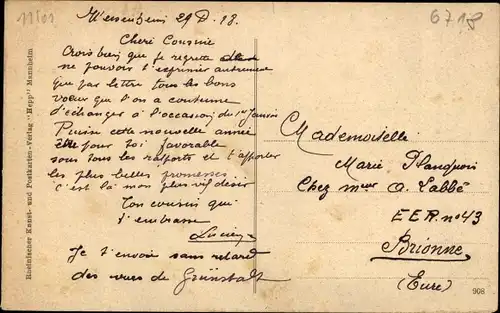 11501
6718
Wessenheim 29 D. 18.
Cheré Cousine
Crois bien que je regrette
ne pouvoir t'exprimer autrement
que par lettre tous les bons
vœux que l'on a coutume
d'échanger à l'occasion du 1er Janvier
Puisse cette nouvelle année
être pour toi favorable
sous tous les rapports et t'apporter
les plus belles promesses
c'est là mon plus vif désir
Ton cousin qui
t'embrasse
Lucien
Je t'envoie sans retard
des vues de Grünstadt
Mademoiselle
Marie Planquois
Chez Meur A. Labbé
E E R. no 43
Brionne
(Eure)
908
Rheinischer Kunst- und Postkarten-Verlag "Hepp" Mannheim